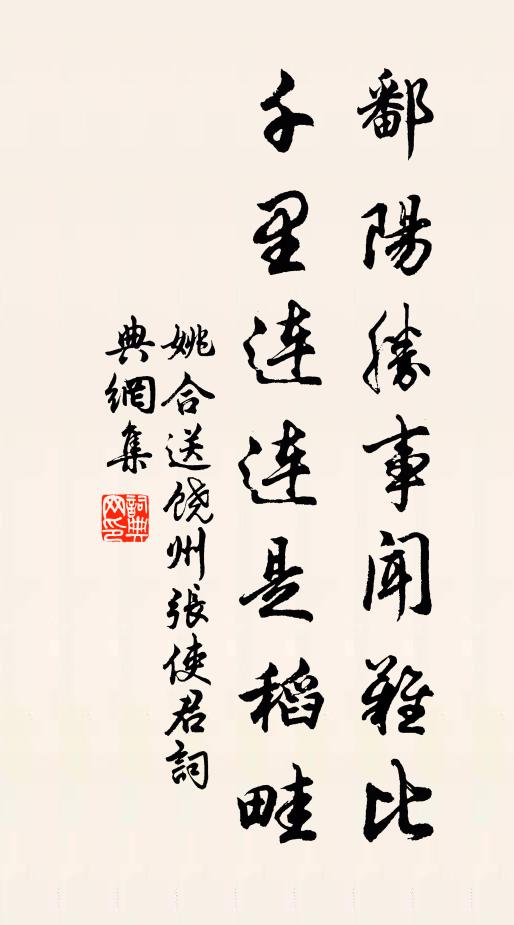 鄱陽勝事聞難比
千里連連是稻畦
姚合送饒州張使君詞
典網集
詞典
网印